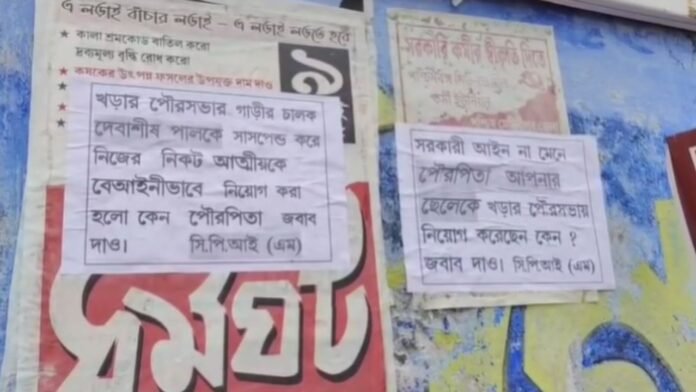 এ লড়াই বাঁচার লড়াই – এ লড়াই লড়তে হবে
★ কালা শ্রমকোড বাতিল করো
দ্রব্যমূল্য বৃদ্ধি রোধ করো
★ কৃষকের উৎপন্ন ফসলের উপযুক্ত দাম দাও
৯
খড়ার পৌরসভার গাড়ীর চালক
দেবাশীষ পালকে সাসপেন্ড করে
নিজের নিকট আত্মীয়কে
বেআইনীভাবে নিয়োগ করা
হলো কেন পৌরপিতা জবাব
দাও। সি.পি.আই (এম)
ধর্মঘট
সরকারি কর্মীর স্বীকৃতি দিতে
সরকারী আইন না মেনে
পৌরপিতা আপনার
ছেলেকে খড়ার পৌরসভায়
নিয়োগ করেছেন কেন ?
জবাব দাও। সি.পি.আই (এম)